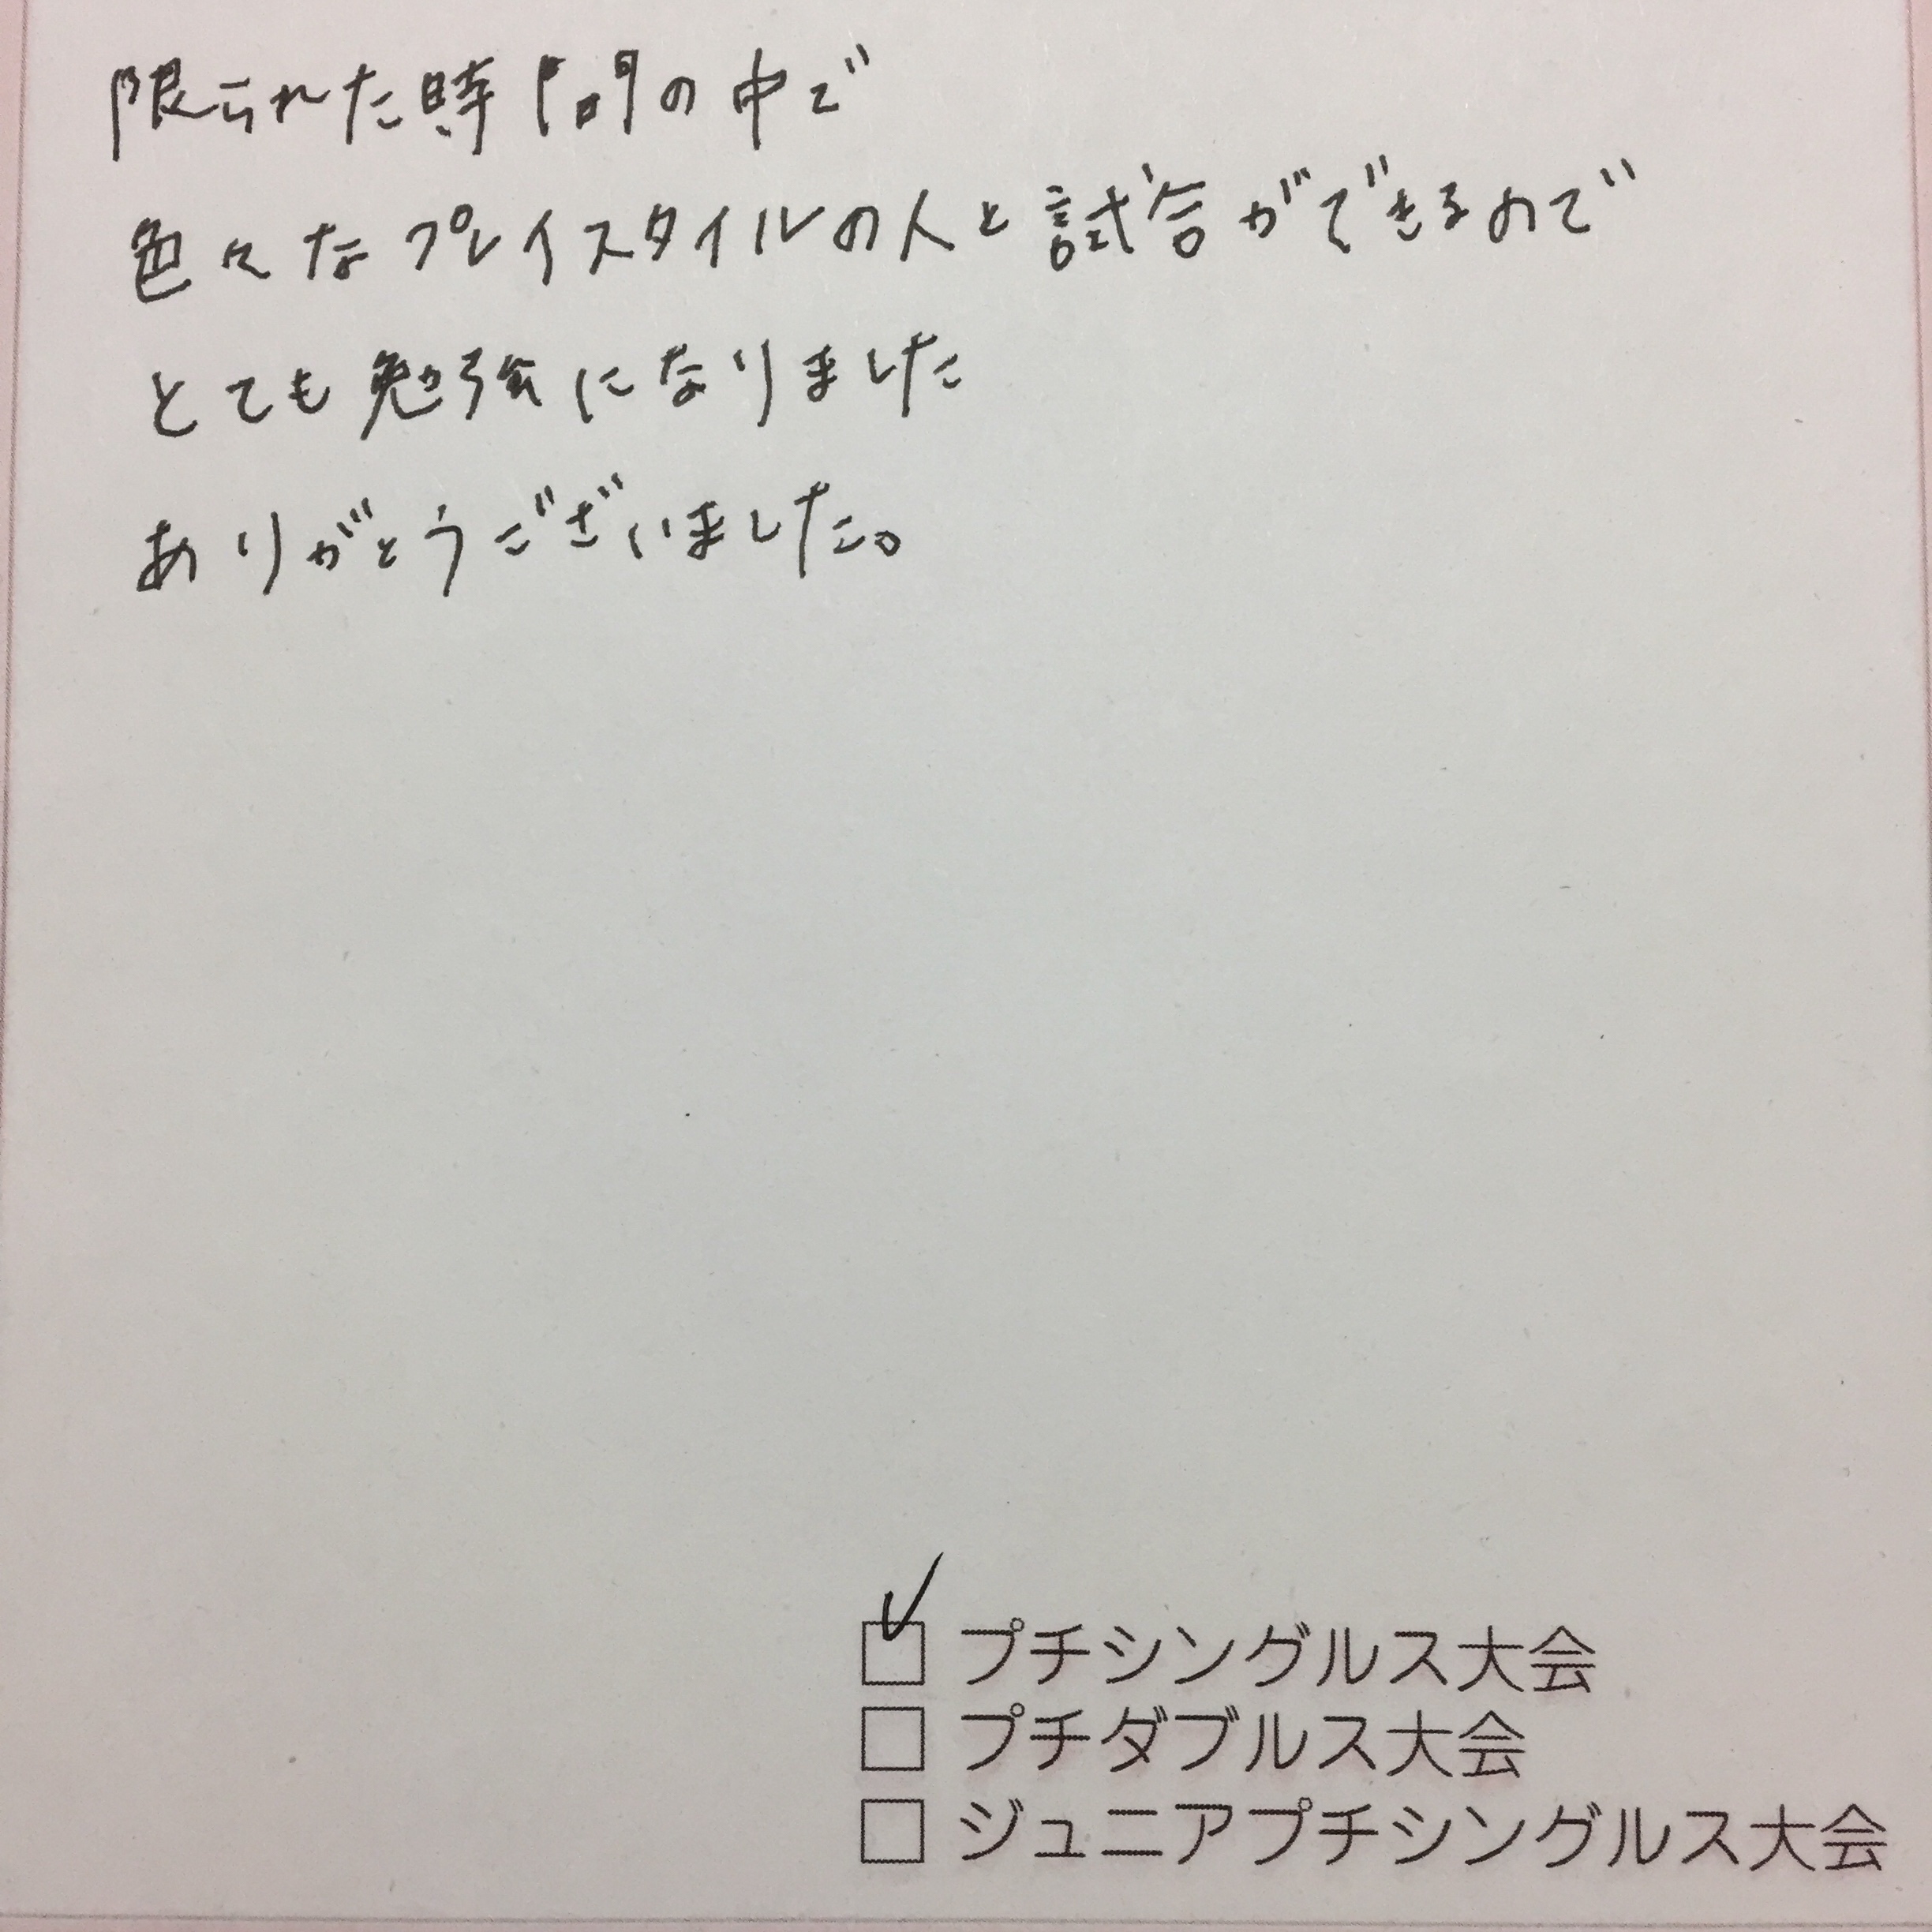 限られた時間の中で
色々なプレイスタイルの人と試合ができるので
とても勉強になりました
ありがとうございました。
☑ プチシングルス大会
☐ プチダブルス大会
☐ ジュニアプチシングルス大会